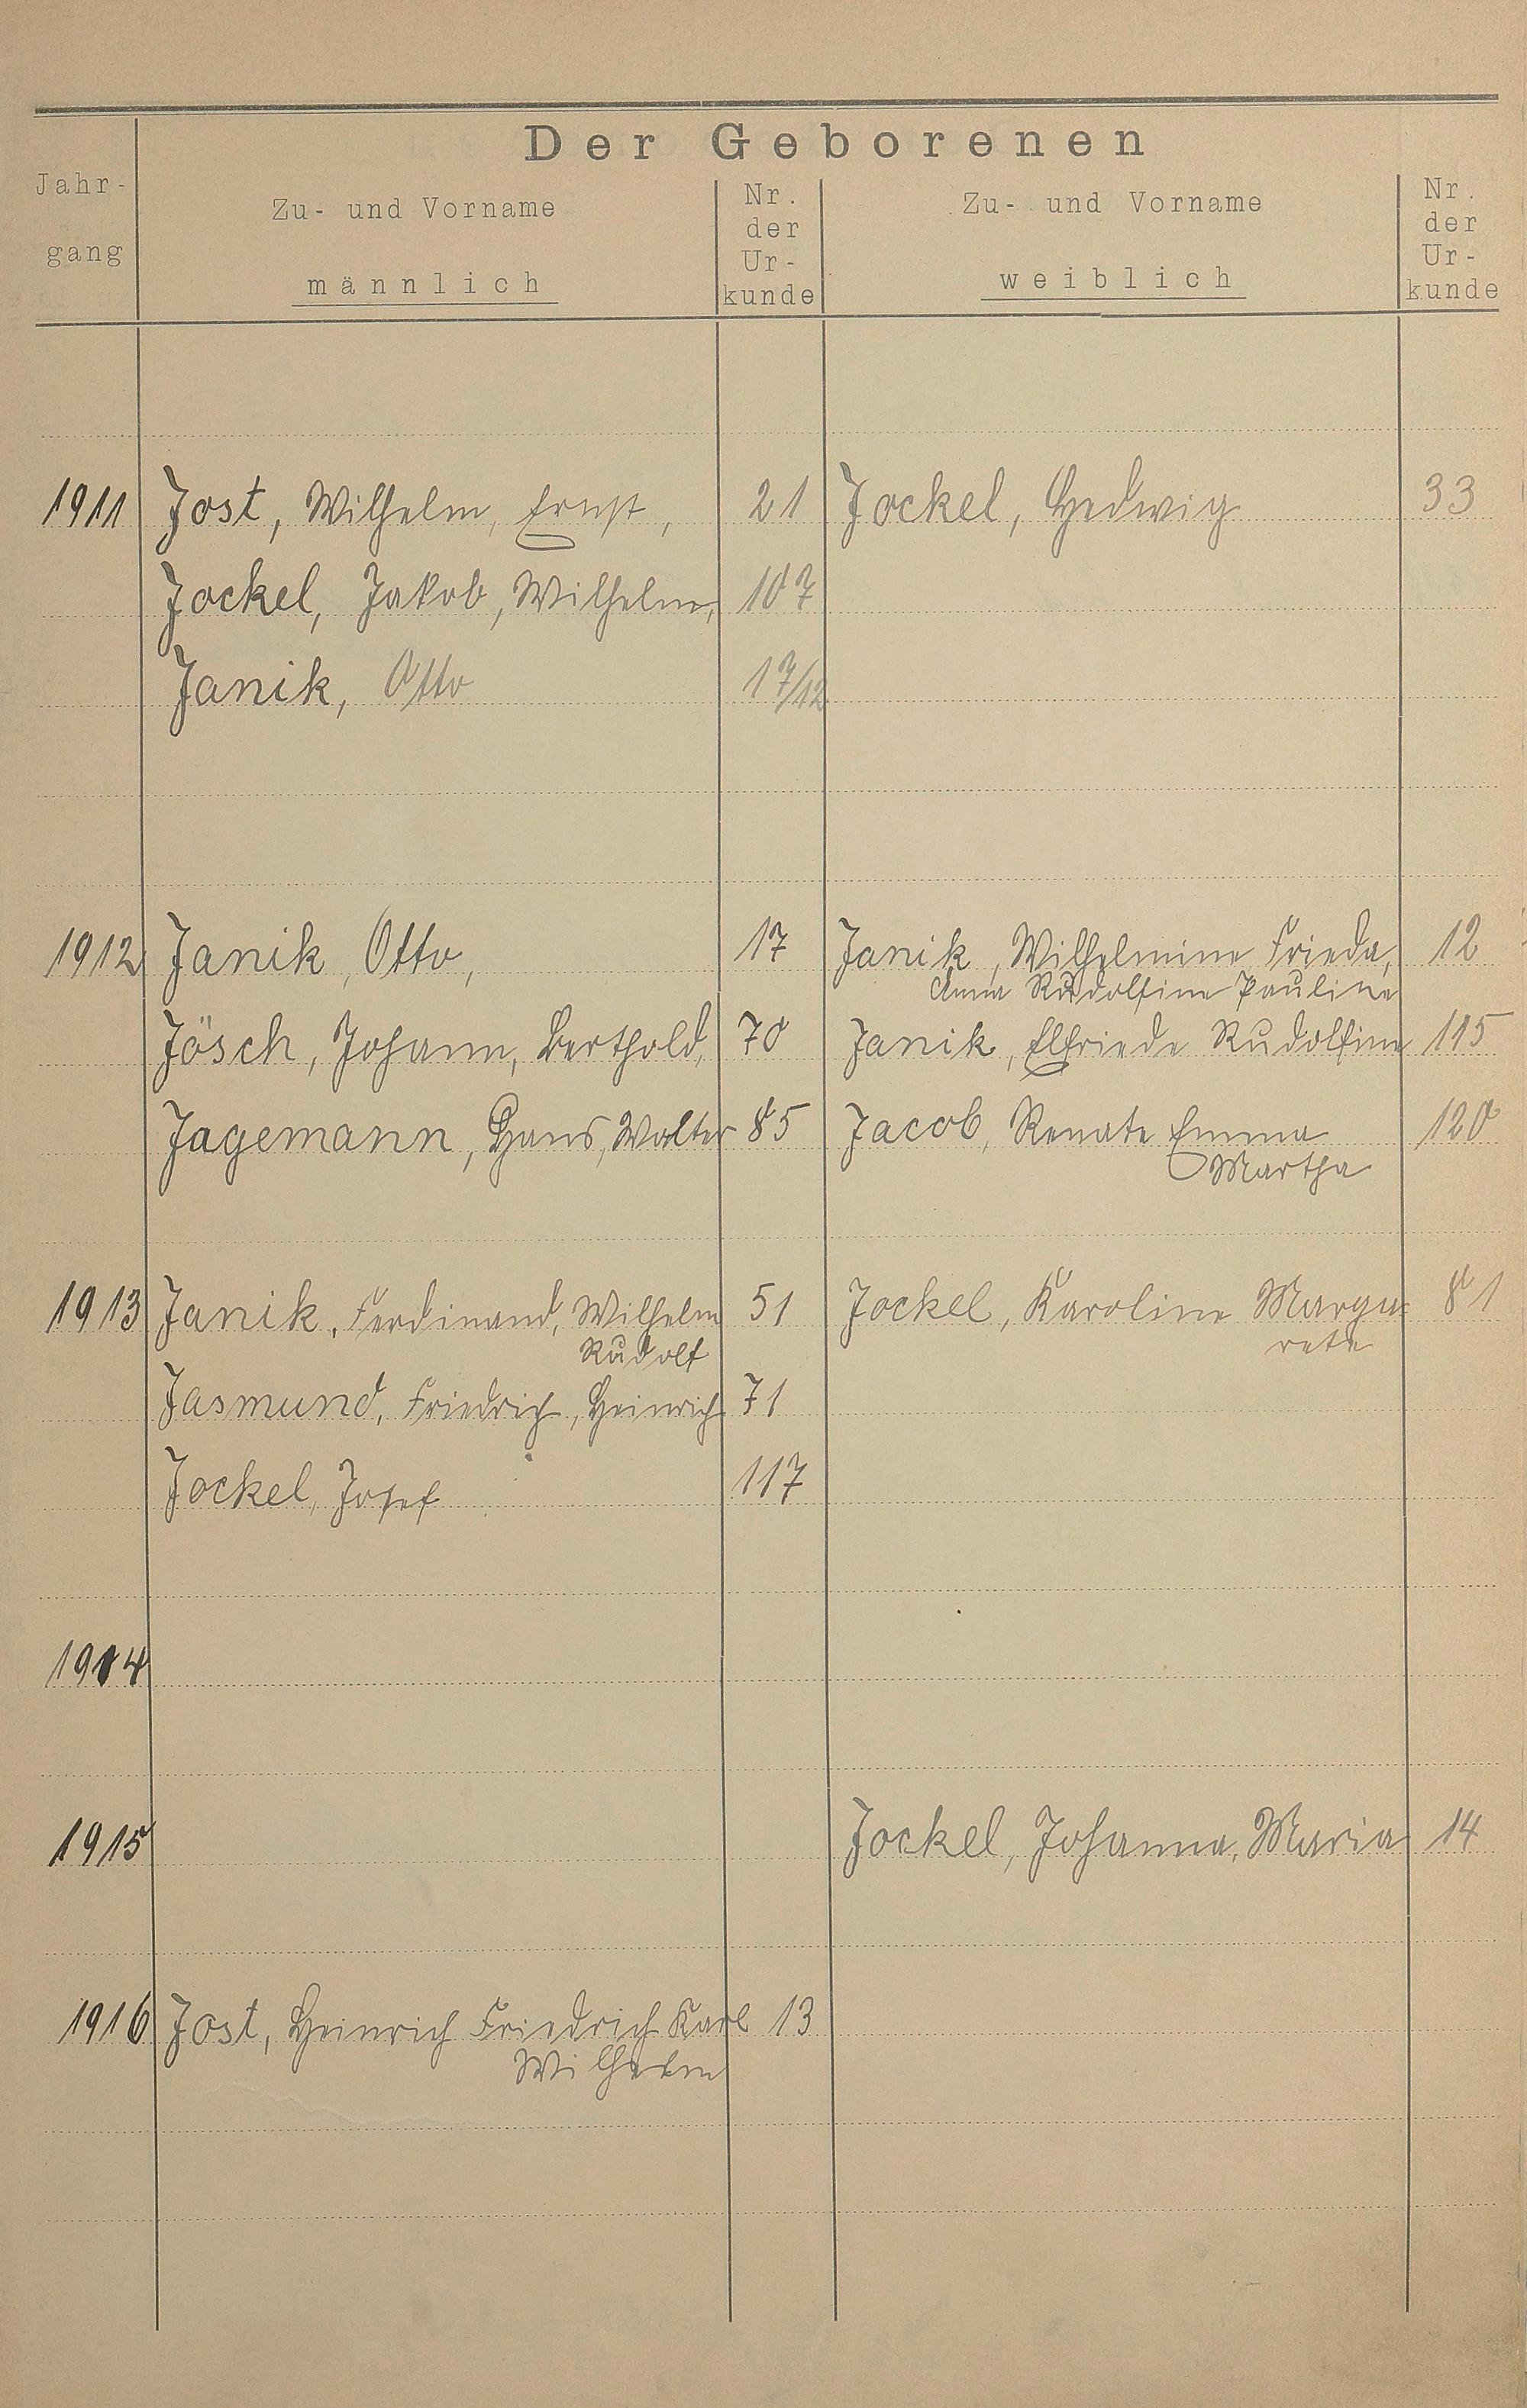 Der Geborenen
Jahr-
gang
Zu- und Vorname
männlich
Nr.
der
Ur-
kunde
Zu- und Vorname
weiblich
Nr.
der
Ur-
kunde
1911 Jost, Wilhelm, Ernst, 21 Jockel, Hedwig 33
Jockel, Jakob, Wilhelm, 107
Janik, Otto 17/12
1912 Janik, Otto, 17 Janik, Wilhelmine Frieda, 12
Anna Rudolfine Pauline
Jösch, Johann, Berthold, 70 Janik, Elfriede Rudolfine 115
Jagemann, Hans, Walter 85 Jacob, Renate Emma 120
Martha
1913 Janik, Ferdinand, Wilhelm 51 Jockel, Karoline Marga= 81
Rudolf rete
Jasmund, Friedrich, Heinrich 71
Jockel, Josef 117
1914
1915 Jockel, Johanna, Maria 14
1916 Jost, Heinrich Friedrich Karl 13
Wilhelm